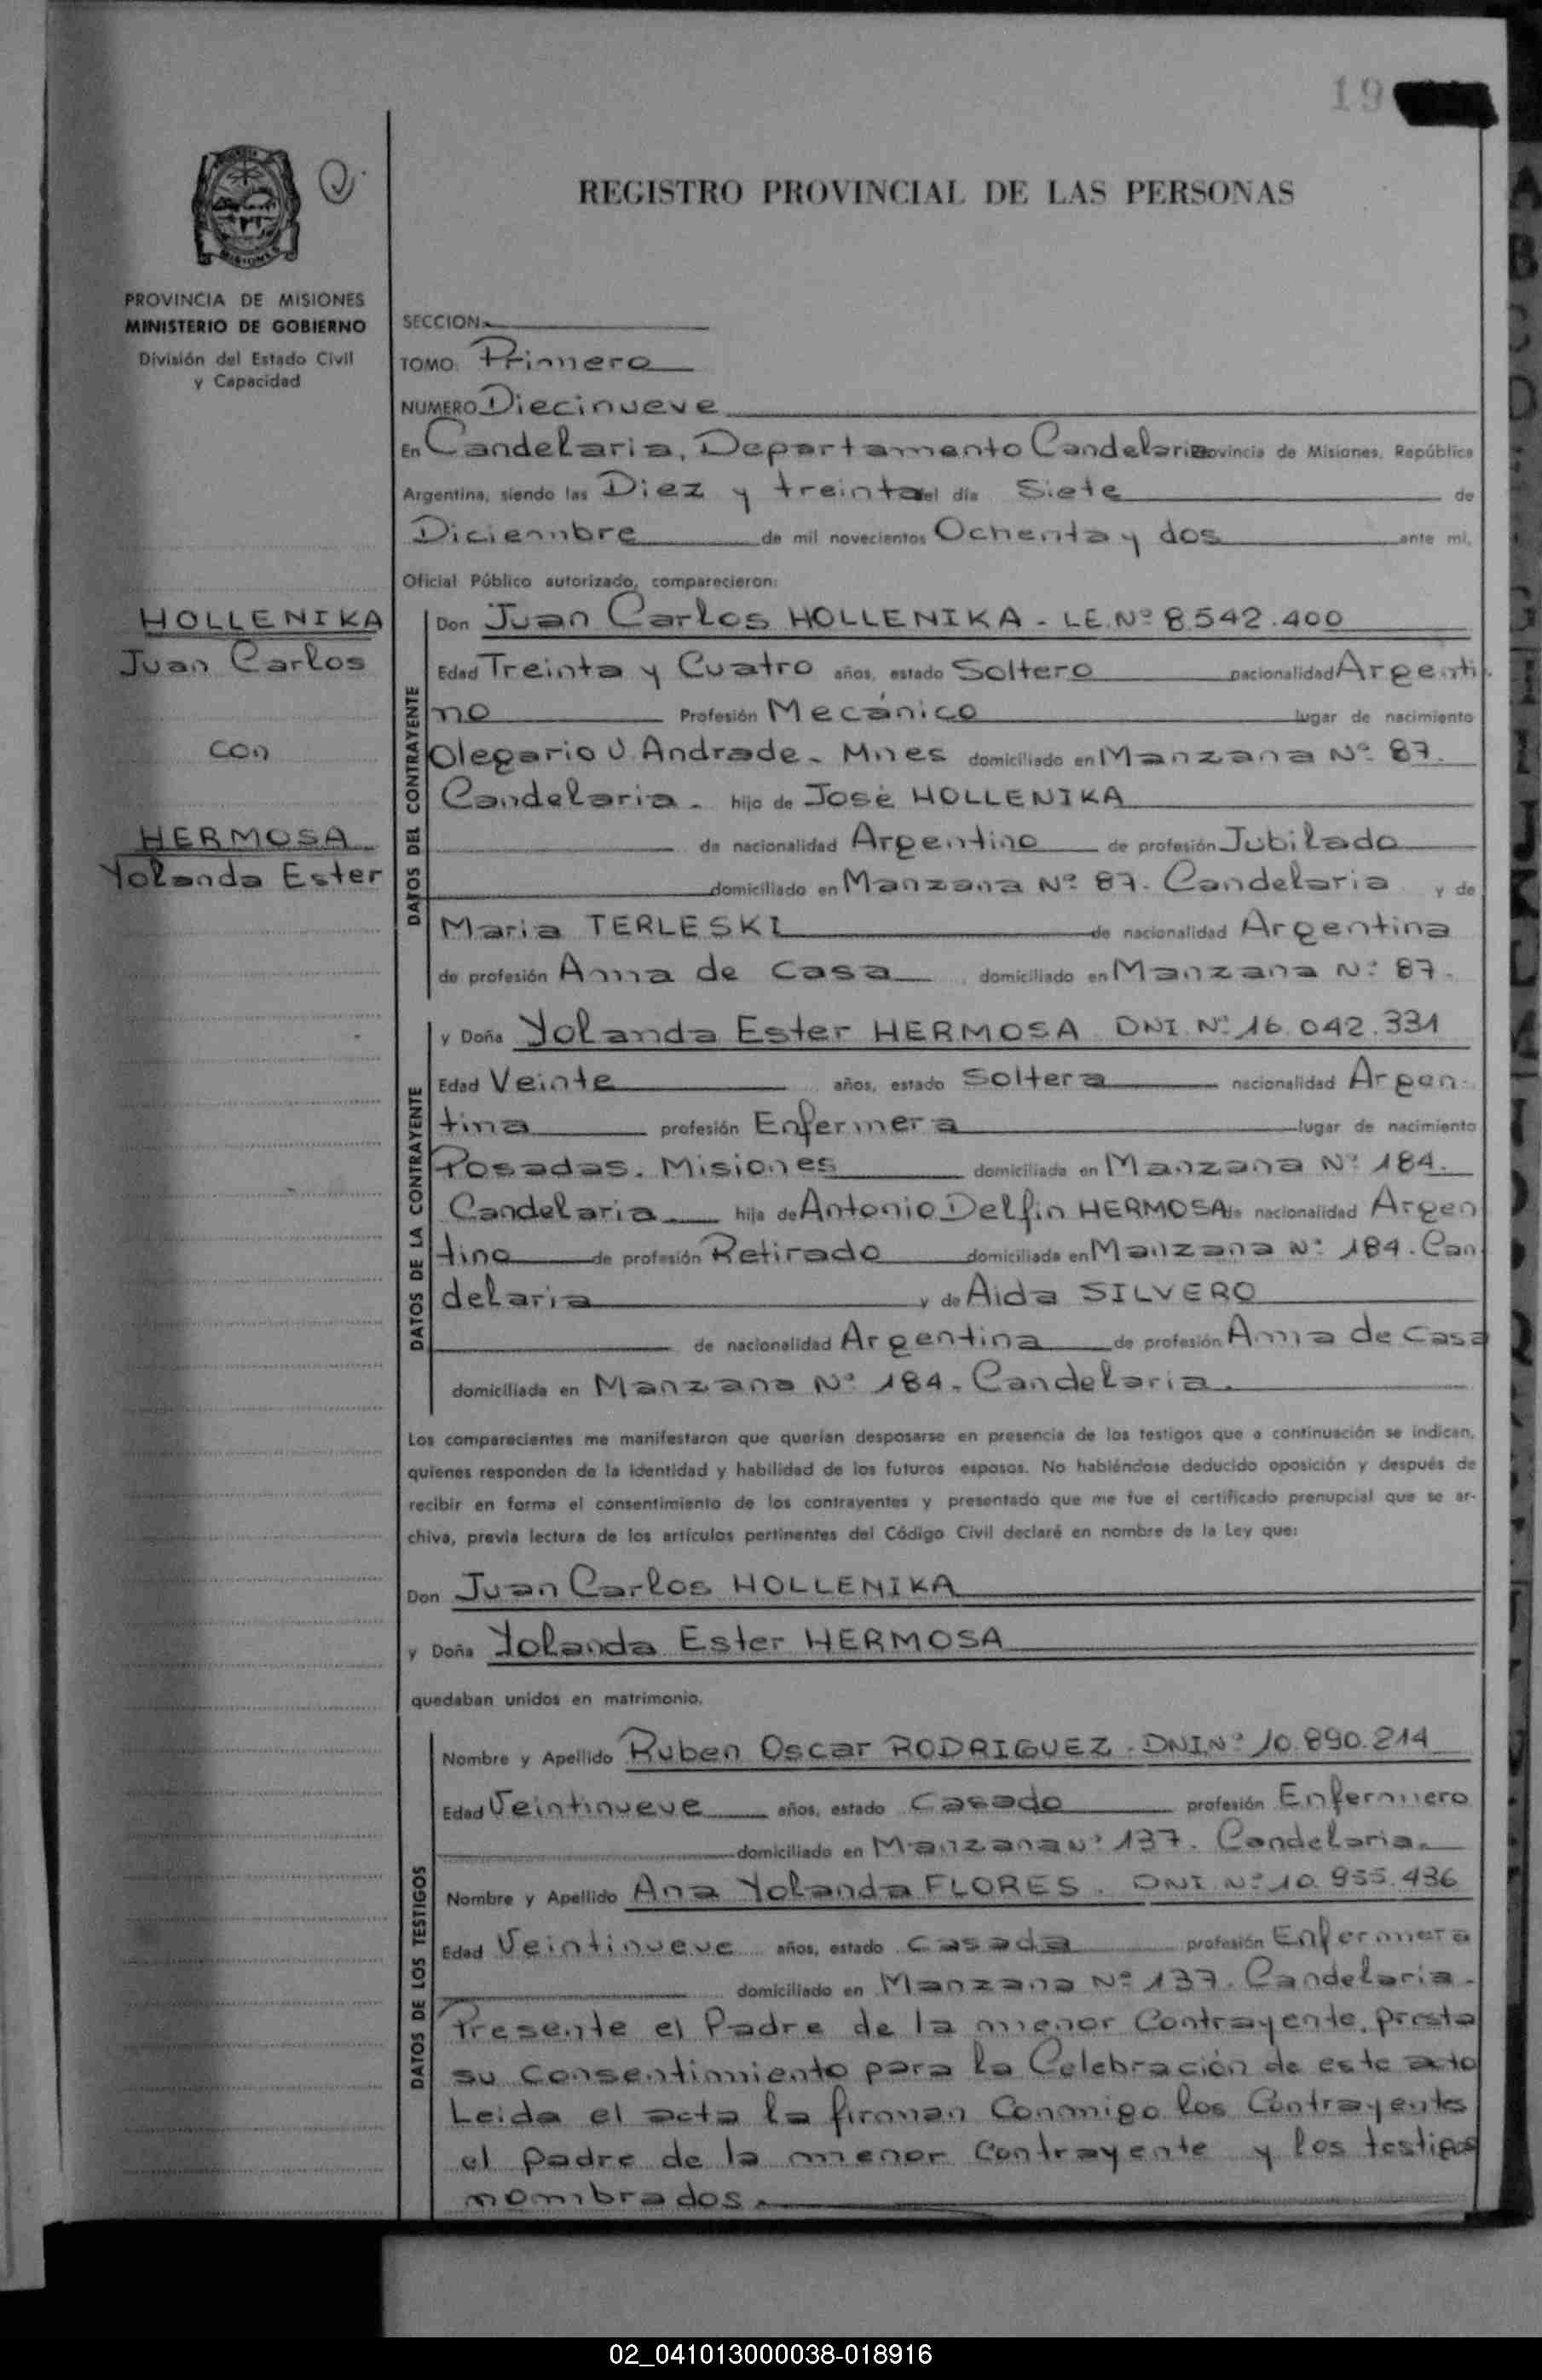 19
REGISTRO PROVINCIAL DE LAS PERSONAS
MISIONES
PROVINCIA DE MISIONES
MINISTERIO DE GOBIERNO
División del Estado Civil
y Capacidad
HOLLENIKA
Juan Carlos
con
HERMOSA
Yolanda Ester
SECCION
TOMO: Primero
NUMERO Diecinueve
En Candelaria, Departamento Candelaria Provincia de Misiones, República
Argentina, siendo las Diez y treinta del día Siete de
Diciembre de mil novecientos Ochenta y dos ante mi,
Oficial Público autorizado, comparecieron:
DATOS DEL CONTRAYENTE
Don Juan Carlos HOLLENIKA - LE. Nº 8542.400
Edad Treinta y Cuatro años, estado Soltero nacionalidad Argenti
no Profesión Mecánico lugar de nacimiento
Olegario V. Andrade - Mnes domiciliado en Manzana Nº 87.
Candelaria - hijo de José HOLLENIKA
de nacionalidad Argentino de profesión Jubilado
domiciliado en Manzana Nº 87. Candelaria y de
Maria TERLESKI de nacionalidad Argentina
de profesión Ama de Casa domiciliado en Manzana Nº 87.
DATOS DE LA CONTRAYENTE
y Doña Yolanda Ester HERMOSA DNI. Nº 16.042.331
Edad Veinte años, estado Soltera nacionalidad Argen
tina profesión Enfermera lugar de nacimiento
Posadas. Misiones domiciliada en Manzana Nº 184.
Candelaria hija de Antonio Delfin HERMOSA de nacionalidad Argen
tino de profesión Retirado domiciliada en Manzana Nº 184. Can
delaria y de Aida SILVERO
de nacionalidad Argentina de profesión Ama de Casa
domiciliada en Manzana Nº 184. Candelaria.
Los comparecientes me manifestaron que querían desposarse en presencia de los testigos que a continuación se indican,
quienes responden de la identidad y habilidad de los futuros esposos. No habiéndose deducido oposición y después de
recibir en forma el consentimiento de los contrayentes y presentado que me fue el certificado prenupcial que se ar-
chiva, previa lectura de los artículos pertinentes del Código Civil declaré en nombre de la Ley que:
Don Juan Carlos HOLLENIKA
y Doña Yolanda Ester HERMOSA
quedaban unidos en matrimonio.
DATOS DE LOS TESTIGOS
Nombre y Apellido Ruben Oscar RODRIGUEZ. DNI. Nº 10.890.214
Edad Veintinueve años, estado Casado profesión Enfermero
domiciliado en Manzana Nº 137. Candelaria.
Nombre y Apellido Ana Yolanda FLORES. DNI. Nº 10.955.436
Edad Veintinueve años, estado Casada profesión Enfermera
domiciliado en Manzana Nº 137. Candelaria.
Presente el Padre de la menor Contrayente, presta
su Consentimiento para la Celebración de este acto
Leida el acta la firman Conmigo los Contrayentes
el padre de la menor Contrayente y los testigos
nombrados.
02_041013000038-018916